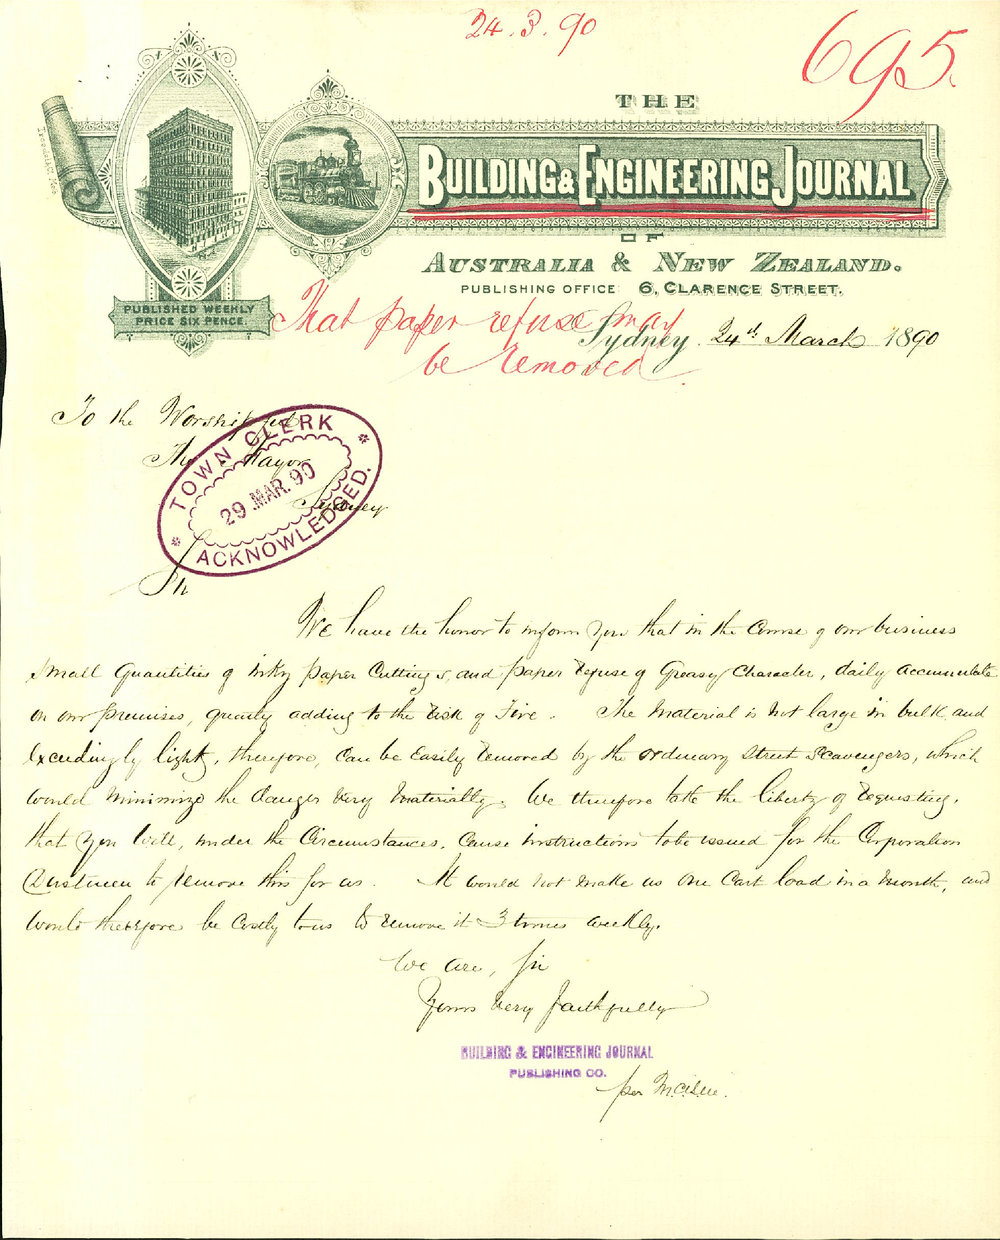 24.3.90
695.
THE
BUILDING & ENGINEERING JOURNAL
OF
AUSTRALIA & NEW ZEALAND.
PUBLISHING OFFICE 6, CLARENCE STREET.
PUBLISHED WEEKLY
PRICE SIX PENCE.
That paper refuse may
be removed.
Sydney 24th March 1890
To the Worshipful
The Mayor
Sydney
TOWN CLERK
29 MAR. 90
ACKNOWLEDGED.
Sir
We have the honor to inform you that in the Course of our business
small quantities of inky paper Cuttings, and paper refuse of Greasy Character, daily accumulate
on our premises, greatly adding to the risk of Fire. The Material is not large in bulk and
exceedingly light, therefore, can be easily removed by the ordinary Street Scavengers, which
would minimize the danger very materially. We therefore take the liberty of requesting,
that you will, under the Circumstances, Cause instructions to be issued for the Corporation
Dustmen to remove this for us. It would not make us one Cart load in a month, and
would therefore be Costly to us to remove it 3 times weekly.
We are, Sir
Yours very faithfully
BUILDING & ENGINEERING JOURNAL
PUBLISHING CO.
per